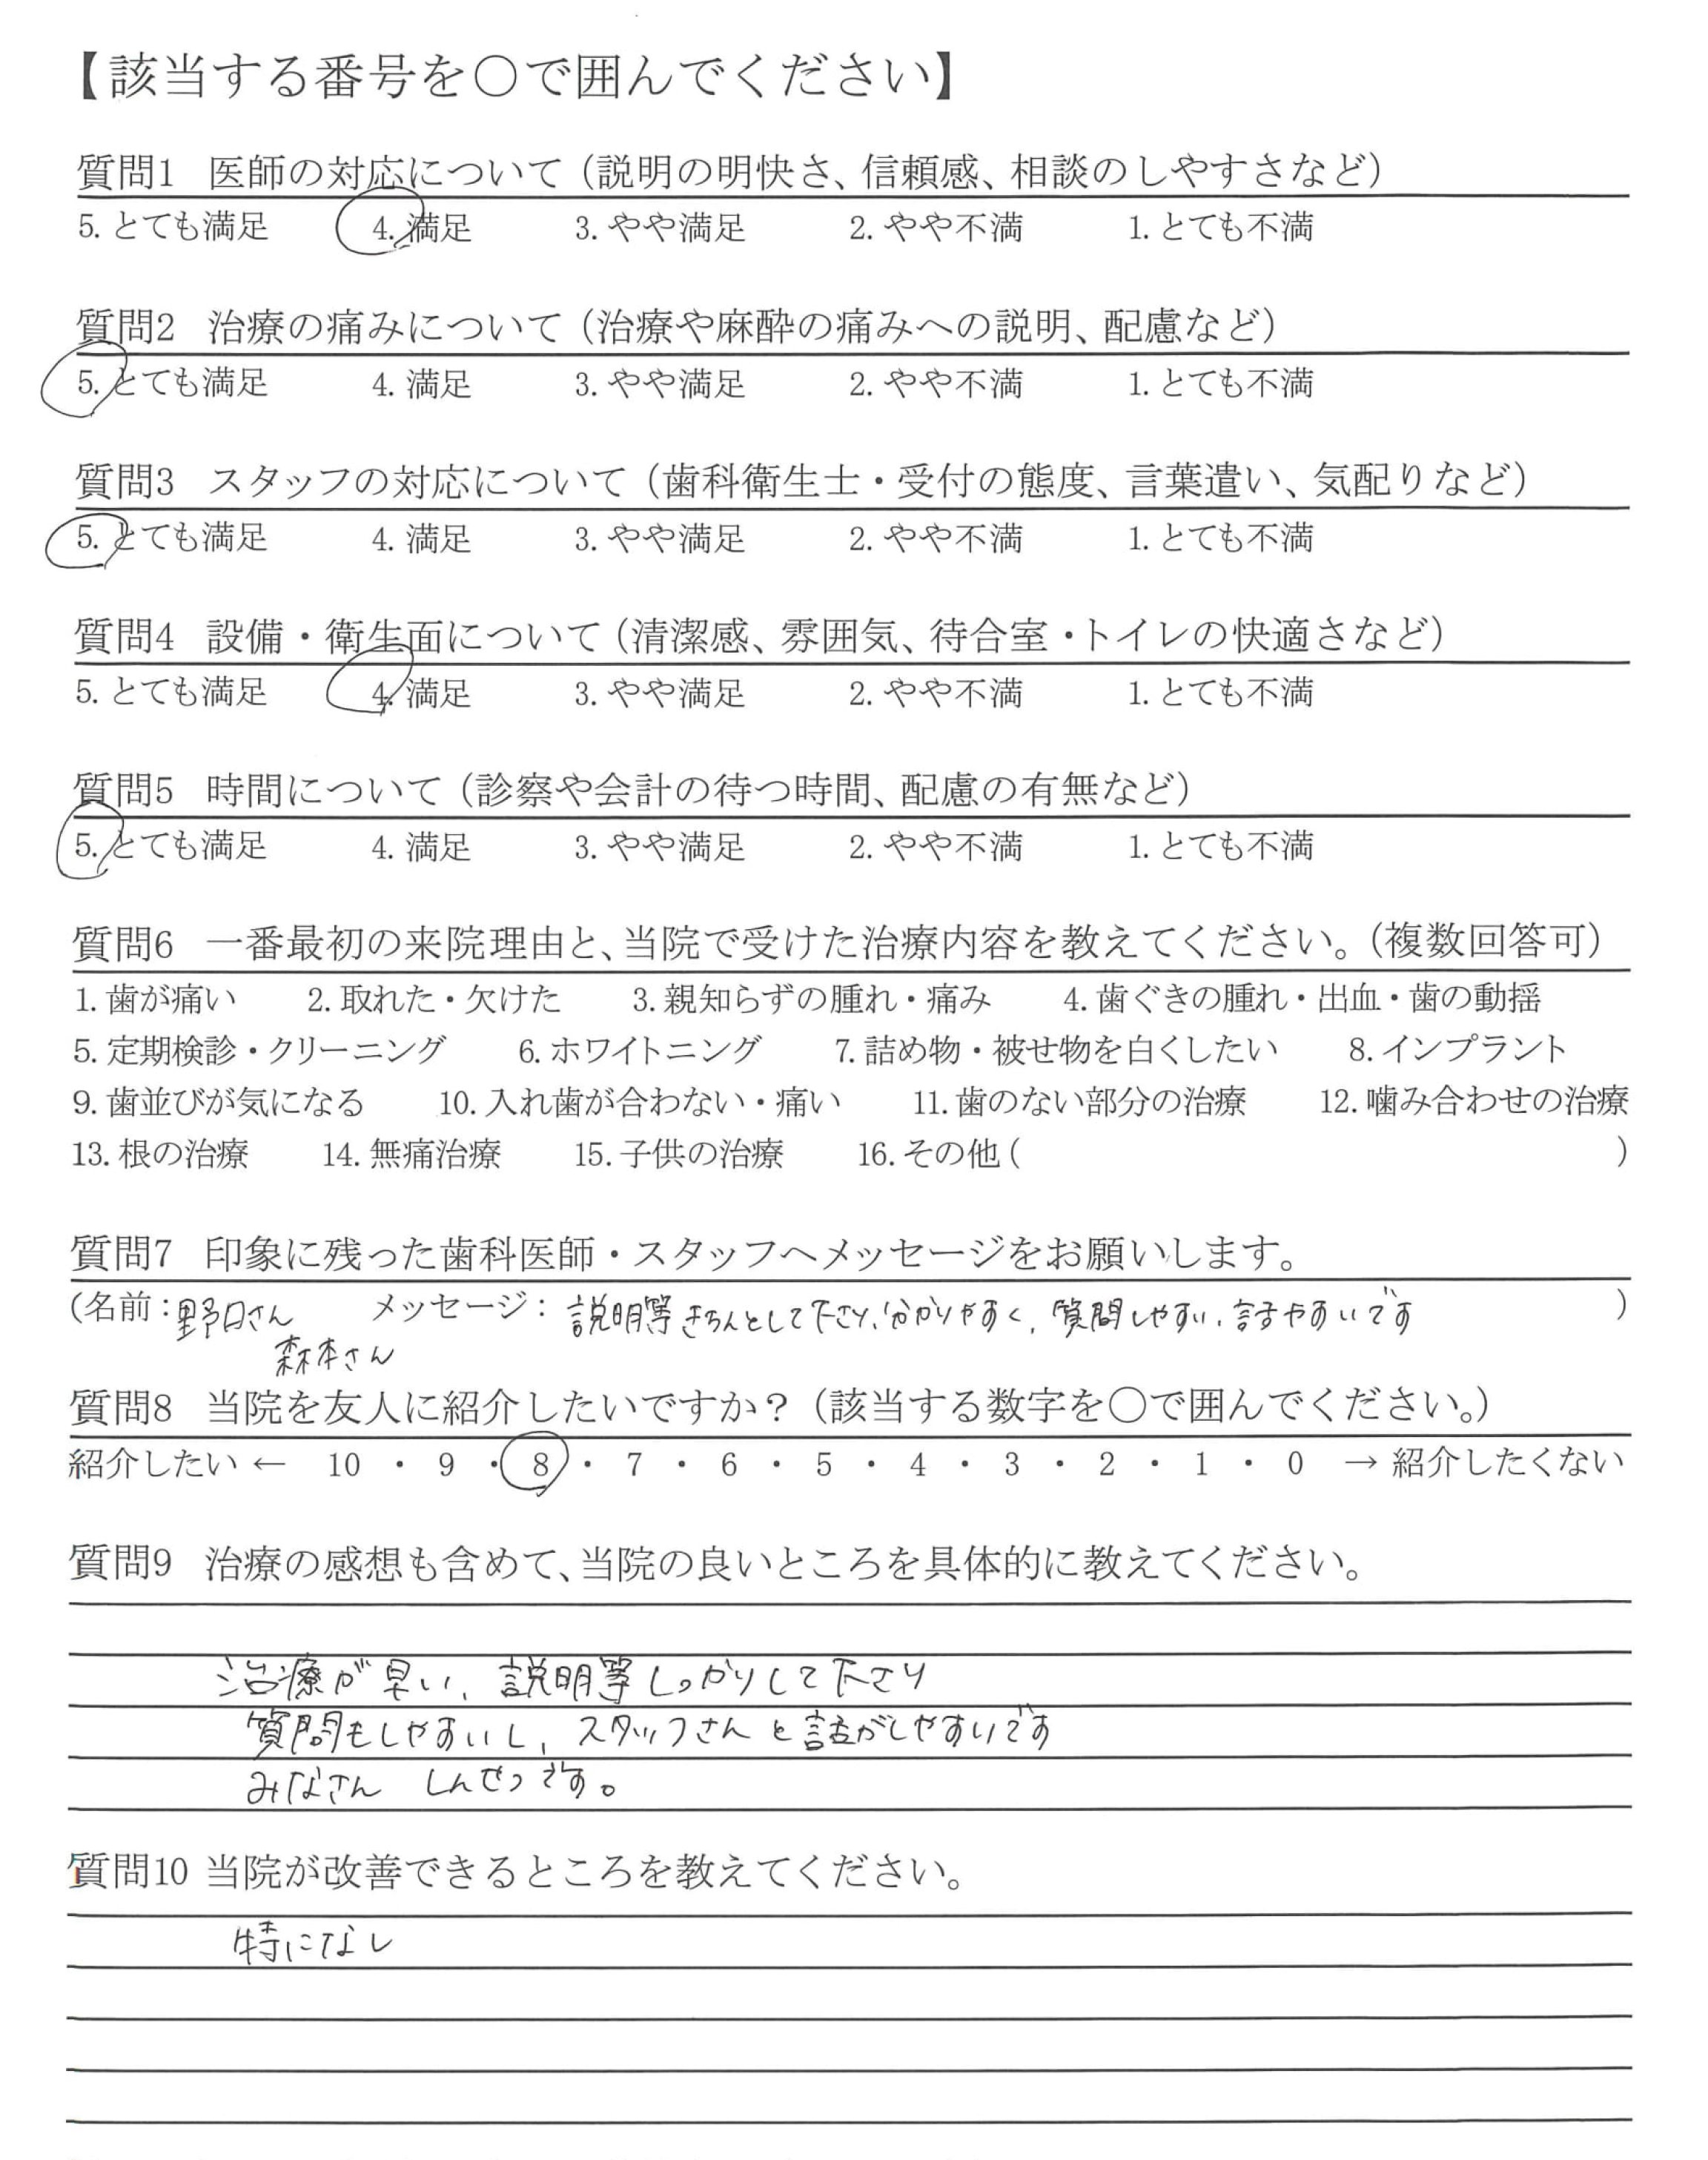 【該当する番号を○で囲んでください】
質問1 医師の対応について（説明の明快さ、信頼感、相談のしやすさなど）
5. とても満足 4. 満足 3. やや満足 2. やや不満 1. とても不満
質問2 治療の痛みについて（治療や麻酔の痛みへの説明、配慮など）
5. とても満足 4. 満足 3. やや満足 2. やや不満 1. とても不満
質問3 スタッフの対応について（歯科衛生士・受付の態度、言葉遣い、気配りなど）
5. とても満足 4. 満足 3. やや満足 2. やや不満 1. とても不満
質問4 設備・衛生面について（清潔感、雰囲気、待合室・トイレの快適さなど）
5. とても満足 4. 満足 3. やや満足 2. やや不満 1. とても不満
質問5 時間について（診察や会計の待つ時間、配慮の有無など）
5. とても満足 4. 満足 3. やや満足 2. やや不満 1. とても不満
質問6 一番最初の来院理由と、当院で受けた治療内容を教えてください。（複数回答可）
1. 歯が痛い 2. 取れた・欠けた 3. 親知らずの腫れ・痛み 4. 歯ぐきの腫れ・出血・歯の動揺
5. 定期検診・クリーニング 6. ホワイトニング 7. 詰め物・被せ物を白くしたい 8. インプラント
9. 歯並びが気になる 10. 入れ歯が合わない・痛い 11. 歯のない部分の治療 12. 噛み合わせの治療
13. 根の治療 14. 無痛治療 15. 子供の治療 16. その他（ ）
質問7 印象に残った歯科医師・スタッフへメッセージをお願いします。
（名前：野口さん メッセージ：説明等きちんとして下さり、分かりやすく、質問しやすい、話やすいです ）
森本さん
質問8 当院を友人に紹介したいですか？（該当する数字を○で囲んでください。）
紹介したい ← 10 ・ 9 ・ 8 ・ 7 ・ 6 ・ 5 ・ 4 ・ 3 ・ 2 ・ 1 ・ 0 → 紹介したくない
質問9 治療の感想も含めて、当院の良いところを具体的に教えてください。
治療が早い、説明等しっかりして下さり
質問もしやすいし、スタッフさんと話がしやすいです
みなさん しんせつです。
質問10 当院が改善できるところを教えてください。
特になし